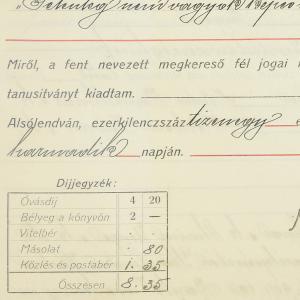 „Jelenleg nem vagyok képes
Miről, a fent nevezett megkereső fél jogai
tanusitványt kiadtam.
Alsólendván, ezerkilenczszáz tizenegy
harmadik napján.
Dijjegyzék:
Óvásdij 4 20
Bélyeg a könyvön 2 —
Vitelbér . .
Másolat . 80
Közlés és postabér 1. 35
Összesen 8. 35